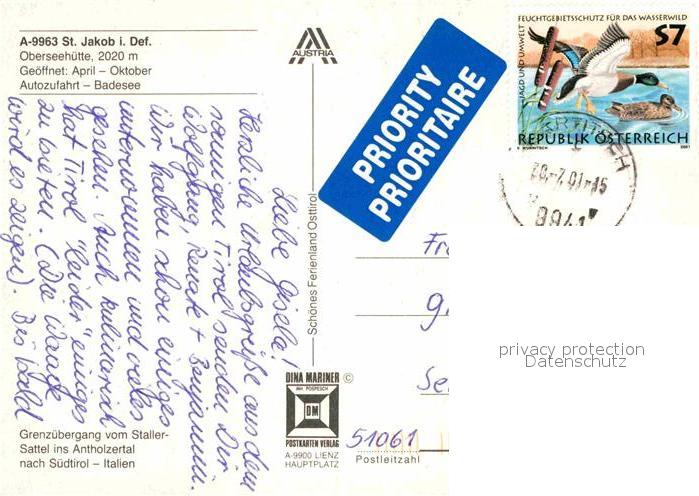 A-9963 St. Jakob i. Def.
Oberseehütte, 2020 m
Geöffnet: April – Oktober
Autozufahrt – Badesee
AUSTRIA
PRIORITY
PRIORITAIRE
FEUCHTGEBIETSSCHUTZ FÜR DAS WASSERWILD
JAGD UND UMWELT
S7
REPUBLIK ÖSTERREICH
2001
9941
Liebe Gisela!
Herzliche Urlaubsgrüße aus dem
sonnigen Tirol senden Dir
Wolfgang, Renate + Benjamin.
Wir haben schon einiges
unternommen und vieles
gesehen. Auch kulinarisch
hat Tirol "leider" einiges
zu bieten. (Die Waage
wird es zeigen). Bis bald
Schönes Ferienland Osttirol
Fr
G
Se
51061
Postleitzahl
privacy protection
Datenschutz
DINA MARINER ©
INH. POSPESCH
DM
POSTKARTEN VERLAG
A-9900 LIENZ
HAUPTPLATZ
Grenzübergang vom Staller-
Sattel ins Antholzertal
nach Südtirol – Italien